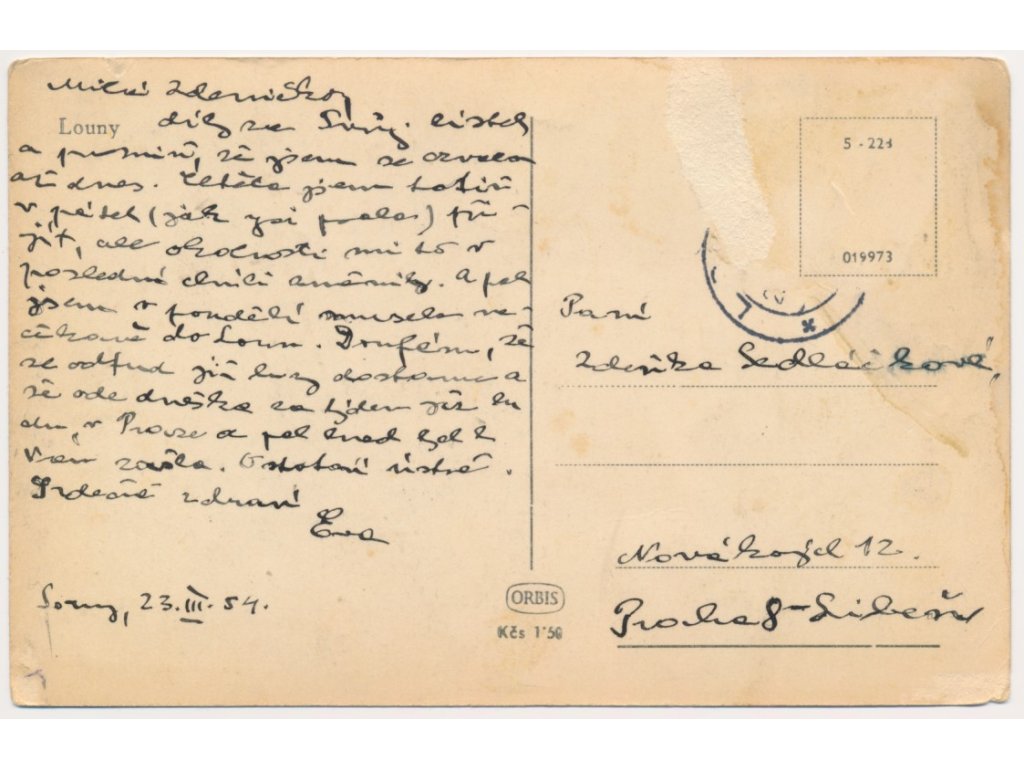 Milá Zdeničko,
Louny
díky za Tvůj lístek
a promiň, že jsem se ozvala
až dnes. Chtěla jsem totiž
v pátek (jak psi padlas) při-
jít, ale okolnosti mi to v
poslední chvíli změnily. A pak
jsem v pondělí musela ne-
čekaně do Loun. Doufám, že
se odtud již brzy dostanu a
že ode dneška za týden již bu
du, v Praze a pak hned bych k
Vám zašla. Ostatní ústně.
Srdečně zdraví
Eva
Louny, 23. III. 54.
ORBIS
Kčs 1·50
5 - 223
019973
Paní
Zdeňka Sedláčková,
Novákových 12.
Praha 8 - Libeň